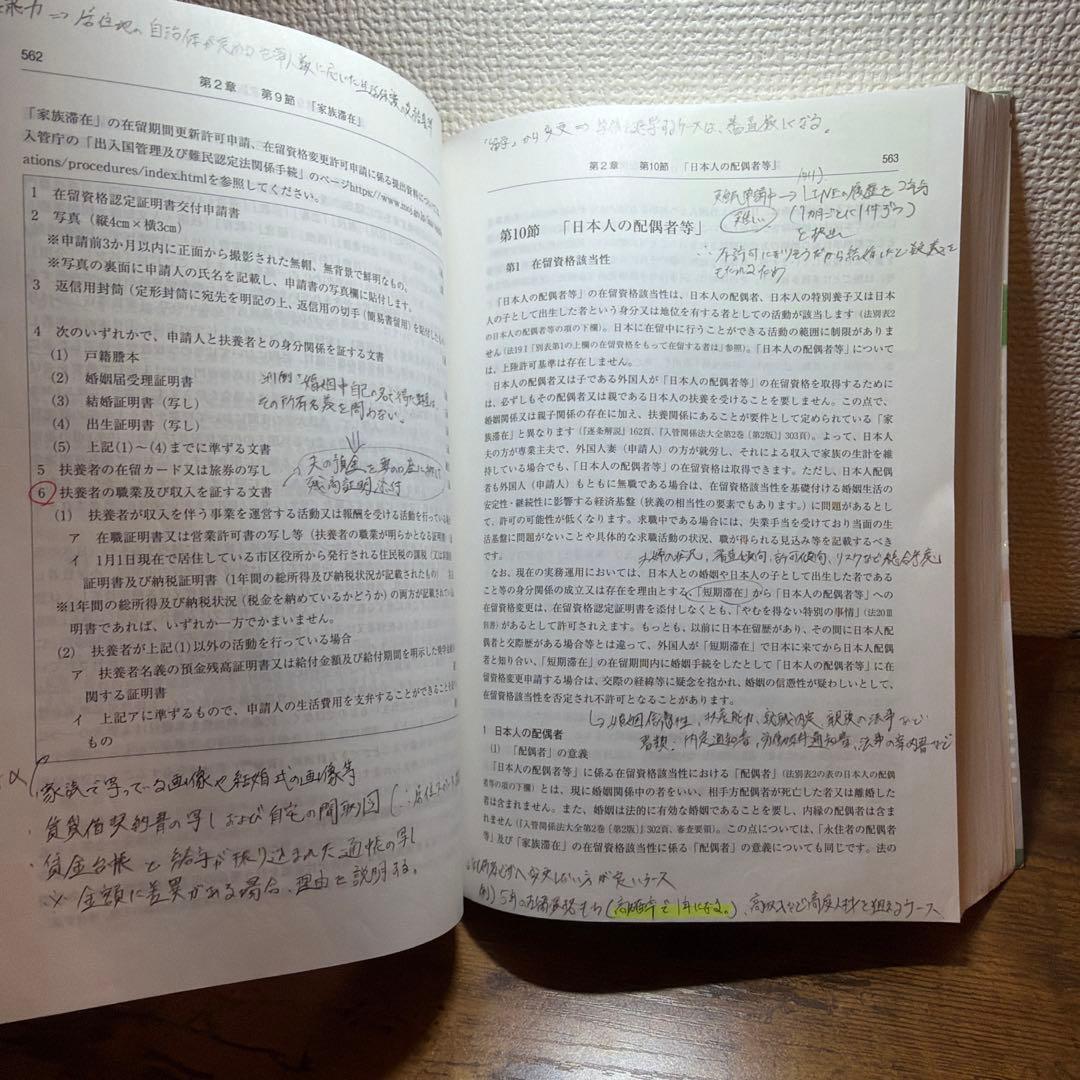 562
第2章　第9節　「家族滞在」
「家族滞在」の在留期間更新許可申請、在留資格変更許可申請に係る提出資料については、
入管庁の「出入国管理及び難民認定法関係手続」のページhttps://www.moj.go.jp/
ations/procedures/index.htmlを参照してください。
1　在留資格認定証明書交付申請書
2　写真（縦4cm×横3cm）
※申請前3か月以内に正面から撮影された無帽、無背景で鮮明なもの。
※写真の裏面に申請人の氏名を記載し、申請書の写真欄に貼付します。
3　返信用封筒（定形封筒に宛先を明記の上、返信用の切手（簡易書留用）を貼付したもの
4　次のいずれかで、申請人と扶養者との身分関係を証する文書
(1)　戸籍謄本
(2)　婚姻届受理証明書
(3)　結婚証明書（写し）
(4)　出生証明書（写し）
(5)　上記(1)～(4)までに準ずる文書
判例：婚姻中自己の名で得た財産は
その所有名義を問わない。
夫の預金を妻の口座に
残高証明添付
5　扶養者の在留カード又は旅券の写し
6　扶養者の職業及び収入を証する文書
(1)　扶養者が収入を伴う事業を運営する活動又は報酬を受ける活動を行っている場
ア　在職証明書又は営業許可書の写し等（扶養者の職業が明らかとなる証明
イ　1月1日現在で居住している市区役所から発行される住民税の課税（又は
証明書及び納税証明書（1年間の総所得及び納税状況が記載されたもの）
※1年間の総所得及び納税状況（税金を納めているかどうか）の両方が記載されている
明書であれば、いずれか一方でかまいません。
(2)　扶養者が上記(1)以外の活動を行っている場合
ア　扶養者名義の預金残高証明書又は給付金額及び給付期間を明示した奨学金
関する証明書
イ　上記アに準ずるもので、申請人の生活費用を支弁することができることを
もの
家族で写っている画像や結婚式の画像等
・賃貸借契約書の写しおよび自宅の間取り図
・賃金台帳と給与が振り込まれた通帳の写し
※金額に差異がある場合、理由を説明する。
「留学」から変更⇒
ケースは、審査厳しくなる。
第2章　第10節　「日本人の配偶者等」
563
難民申請中→LINEの履歴を2年分
（1か月ごとに1件ずつ）
を提出
第10節　「日本人の配偶者等」
第1　在留資格該当性
「日本人の配偶者等」の在留資格該当性は、日本人の配偶者、日本人の特別養子又は日本
人の子として出生した者という身分又は地位を有する者としての活動が該当します（法別表2
の日本人の配偶者等の項の下欄）。日本に在留中に行うことができる活動の範囲に制限がありま
せん（法19Ⅰ「別表第1の上欄の在留資格をもって在留する者は」参照）。「日本人の配偶者等」について
は、上陸許可基準は存在しません。
日本人の配偶者又は子である外国人が「日本人の配偶者等」の在留資格を取得するために
は、必ずしもその配偶者又は親である日本人の扶養を受けることを要しません。この点で、
婚姻関係又は親子関係の存在に加え、扶養関係にあることが要件として定められている「家
族滞在」と異なります（『逐条解説』162頁、『入管関係法大全第2巻〔第2版〕』303頁）。よって、日本人
夫の方が専業主夫で、外国人妻（申請人）の方が就労し、それによる収入で家族の生計を維
持している場合でも、「日本人の配偶者等」の在留資格は取得できます。ただし、日本人配偶
者も外国人（申請人）もともに無職である場合は、在留資格該当性を基礎付ける婚姻生活の
安定性・継続性に影響する経済基盤（狭義の相当性の要素でもあります。）に問題があるとし
て、許可の可能性が低くなります。求職中である場合には、失業手当を受けており当面の生
活基盤に問題がないことや具体的な求職活動の状況、職が得られる見込み等を記載するべき
です。
夫婦の状況、審査傾向、許可傾向、リスクなど総合考慮
なお、現在の実務運用においては、日本人との婚姻や日本人の子として出生した者である
こと等の身分関係の成立又は存在を理由とする、「短期滞在」から「日本人の配偶者等」への
在留資格変更は、在留資格認定証明書を添付しなくとも、「やむを得ない特別の事情」（法20Ⅲ
但書）があるとして許可されえます。もっとも、以前に日本在留歴があり、その間に日本人配
偶者と交際歴がある場合等とは違って、外国人が「短期滞在」で日本に来てから日本人配偶
者と知り合い、「短期滞在」の在留期間内に婚姻手続をしたとして「日本人の配偶者等」に在
留資格変更申請する場合は、交際の経緯等に疑念を抱かれ、婚姻の信憑性が疑わしいとして、
在留資格該当性を否定され不許可となることがあります。
↳婚姻信憑性、扶養能力、就職内定、親族の法事など
書類：内定通知書、労働条件通知書、法事の案内書など
1　日本人の配偶者
(1)　「配偶者」の意義
「日本人の配偶者等」に係る在留資格該当性における「配偶者」（法別表2の表の日本人の配偶
者等の項の下欄）とは、現に婚姻関係中の者をいい、相手方配偶者が死亡した者又は離婚した
者は含まれません。また、婚姻は法的に有効な婚姻であることを要し、内縁の配偶者は含ま
れません（『入管関係法大全第2巻〔第2版〕』302頁、審査要領）。この点については、「永住者の配偶者
等」及び「家族滞在」の在留資格に係る「配偶者」の意義についても同じです。法の
変更しない方が良いケース
例）5年の在留資格から（高確率で1年になる。）、高収入など高度人材を狙えるケース